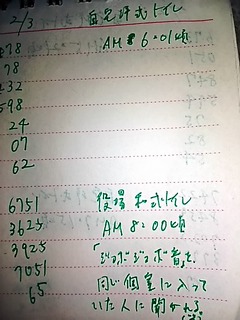 2/3 自宅洋式トイレ
478 AM 6:01頃
78
432
598
24
07
62
6751 役場 和式トイレ
3625 AM 8:00頃
3925 「ジョボジョボ音を
7051 同じ個室に入って
65 いた人に聞かれる